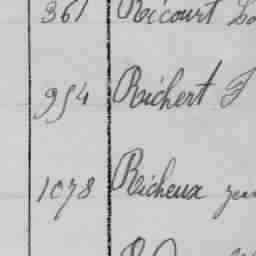 361 Ricourt
954 Richert F
1078 Richeux